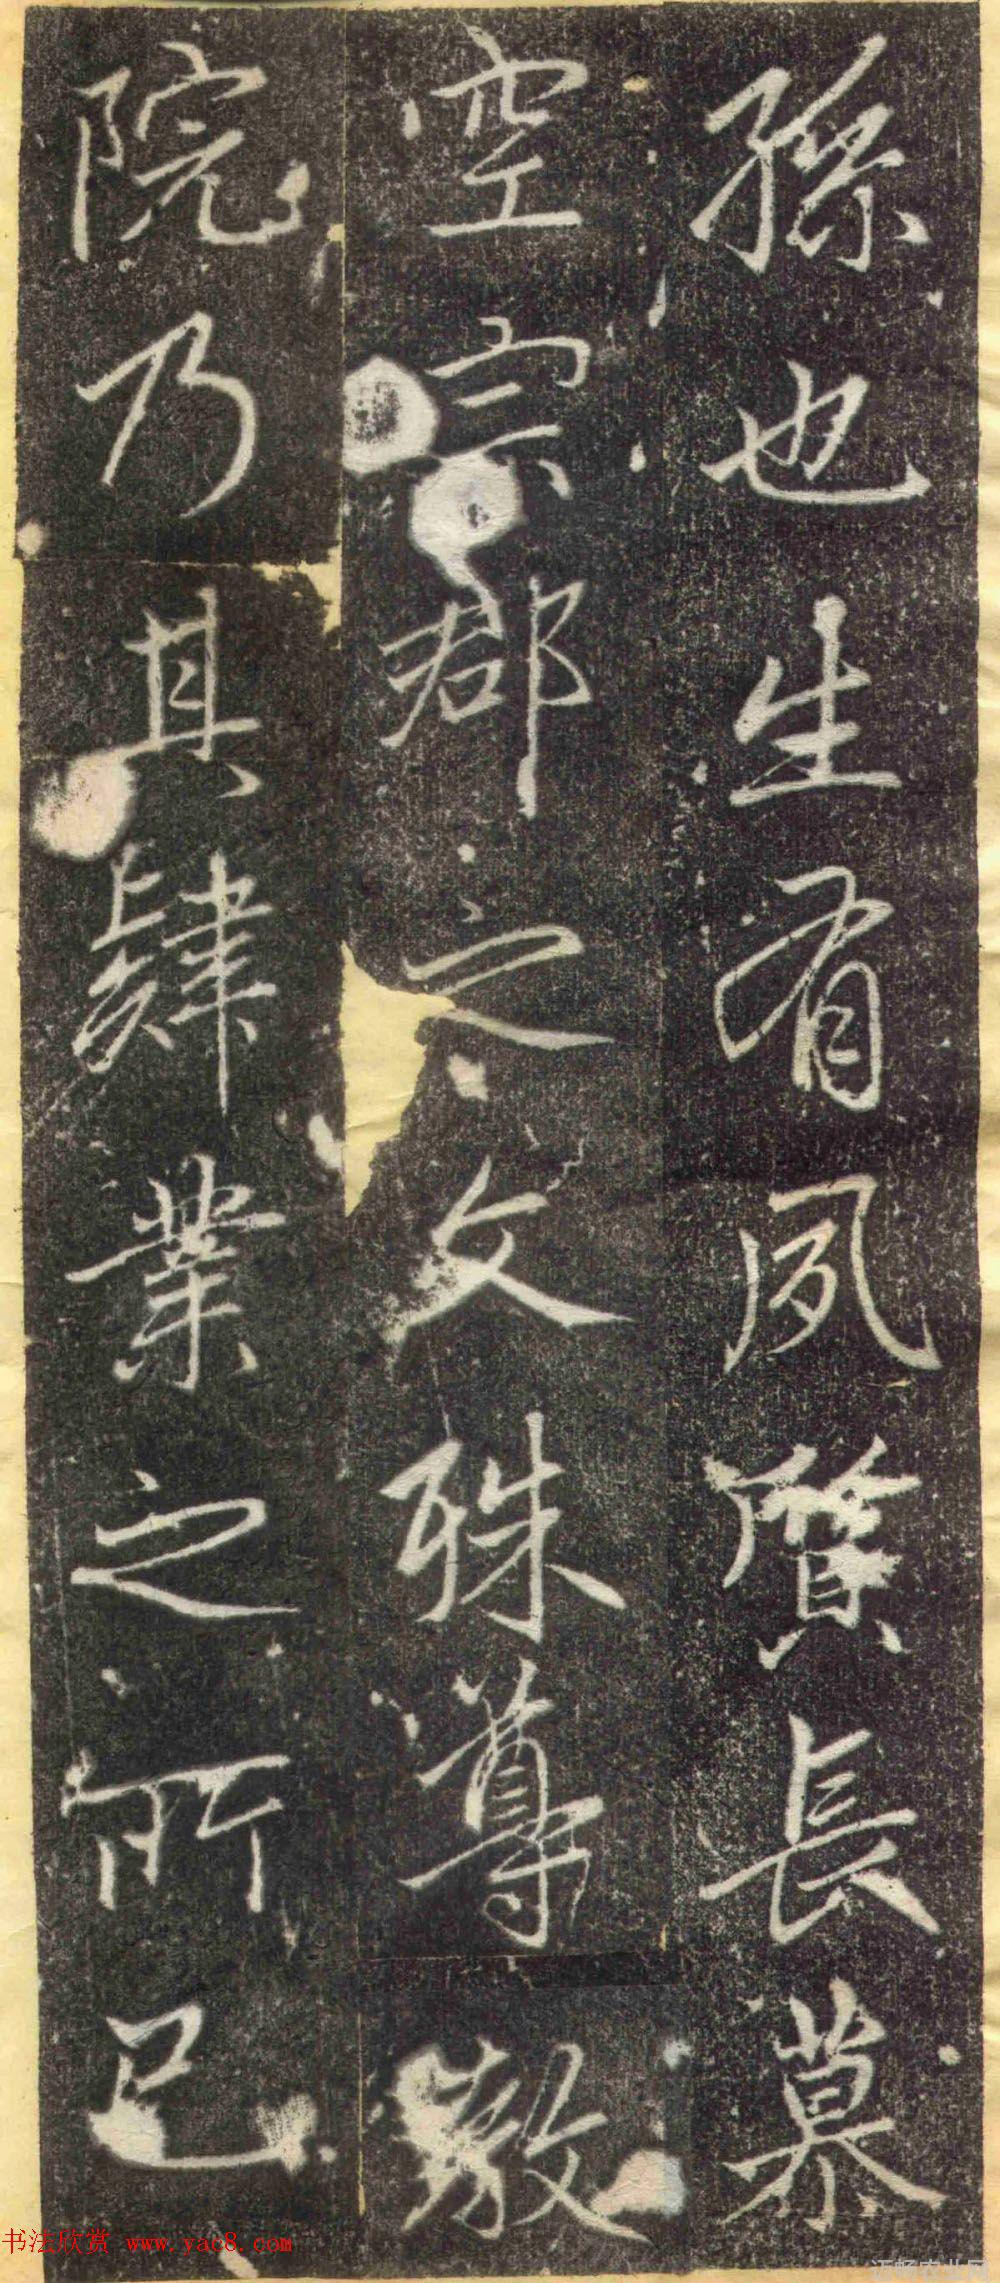 孫也生有夙質長慕
空宗郡之文殊尊勢
院乃其肄業之所已
书法欣赏 www.yac8.com